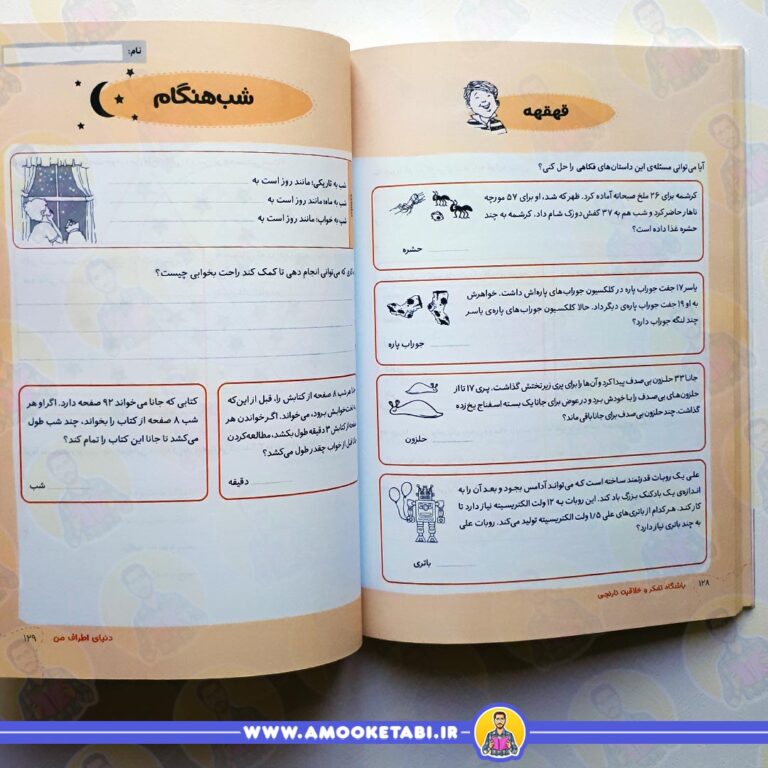 قهقهه
آیا می‌توانی مسئله‌ی این داستان‌های فکاهی را حل کنی؟
کرشمه برای ۲۶ ملخ صبحانه آماده کرد. ظهر که شد، او برای ۵۷ مورچه
ناهار حاضر کرد و شب هم به ۳۷ کفش دوزک شام داد. کرشمه به چند
حشره غذا داده است؟
حشره
یاسر ۱۷ جفت جوراب پاره در کلکسیون جوراب‌های پاره‌اش داشت. خواهرش
به او ۱۹ جفت جوراب پاره‌ی دیگر داد. حالا کلکسیون جوراب‌های پاره‌ی یاسر
چند لنگه جوراب دارد؟
جوراب پاره
جانا ۳۳ حلزون بی‌صدف پیدا کرد و آن‌ها را برای پری زیر تختش گذاشت. پری ۱۷ تا از
حلزون‌های بی‌صدف را با خودش برد و در عوض برای جانا یک بسته اسفناج یخ‌زده
گذاشت. چند حلزون بی‌صدف برای جانا باقی ماند؟
حلزون
علی یک روبات قدرتمند ساخته است که می‌تواند آدامس بجود و بعد آن را به
اندازه‌ی یک بادکنک بزرگ باد کند. این روبات به ۱۲ ولت الکتریسیته نیاز دارد تا
کار کند. هر کدام از باتری‌های علی ۱/۵ ولت الکتریسیته تولید می‌کند. روبات علی
به چند باتری نیاز دارد؟
باتری
۱۲۸ باشگاه تفکر و خلاقیت نارنجی
نام:
شب‌هنگام
شب به تاریکی؛ مانند روز است به
شب به ماه؛ مانند روز است به
شب به خواب؛ مانند روز است به
که می‌توانی انجام دهی تا کمک کند راحت بخوابی چیست؟
هر شب ۸ صفحه از کتابش را، قبل از این‌که
تخت‌خوابش برود، می‌خواند. اگر خواندن هر
صفحه از کتابش ۳ دقیقه طول بکشد، مطالعه کردن
قبل از خواب چقدر طول می‌کشد؟
دقیقه
کتابی که جانا می‌خواند ۹۲ صفحه دارد. اگر او هر
شب ۸ صفحه از کتاب را بخواند، چند شب طول
می‌کشد تا جانا این کتاب را تمام کند؟
شب
دنیای اطراف من ۱۲۹
WWW.AMOOKETABI.IR